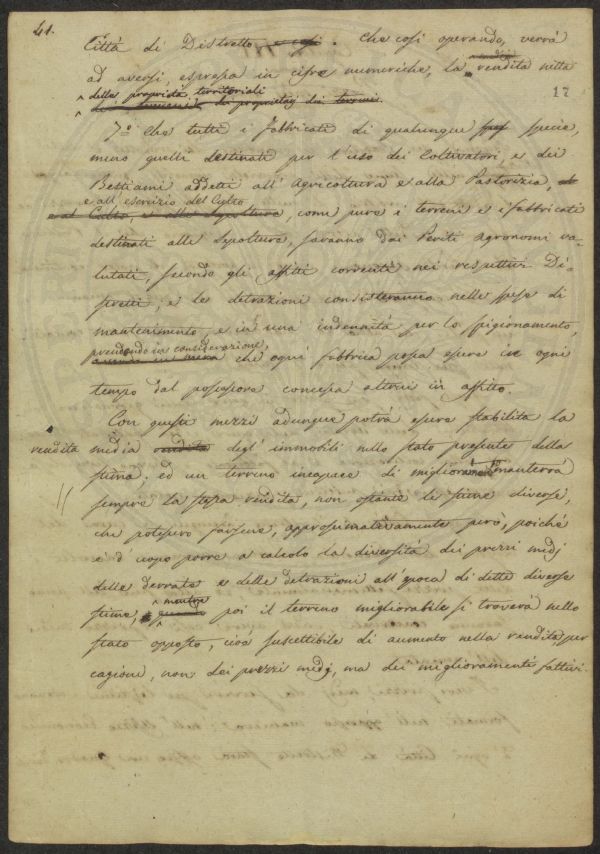 41.
Città di Distretto e cosi. Che così operando, verrà
media
ad aversi, espressa in cifre numeriche, la rendita netta
17
delle proprietà territoriali
dei proprietarj dei terreni.
7.º Che tutti i fabbricati di qualunque specie,
meno quelli destinati per l'uso dei Coltivatori, e dei
Bestiami addetti all'agricoltura e alla Pastorizia,
e all'esercizio del Culto
e al Culto, e alle Sepolture, come pure i terreni e i fabbricati
destinati alle Sepolture, saranno dai Periti agronomi va-
lutati, secondo gli affitti correnti nei respettivi Di-
stretti; e le detrazioni consisteranno nelle spese di
mantenimento, e in una indennità per lo spigionamento,
prendendo in considerazione,
avendo in mira che ogni fabbrica possa essere in ogni
tempo dal possessore concessa altrui in affitto.
Con questi mezzi adunque potrà essere stabilita la
rendita media rendita degl'immobili nello stato presente della
stima; ed un terreno incapace di miglioramento manterrà
sempre la stessa rendita, non ostante le stime diverse,
che potessero farsene, approssimativamente però, poichè
è d'uopo porre a calcolo la diversità dei prezzi medj
delle derrate e delle detrazioni all'epoca di dette diverse
mentre
stime, poi il terreno migliorabile si troverà nello
stato opposto, cioè suscettibile di aumento nella rendita, per
cagione, non dei prezzi medj, ma dei miglioramenti fattivi.